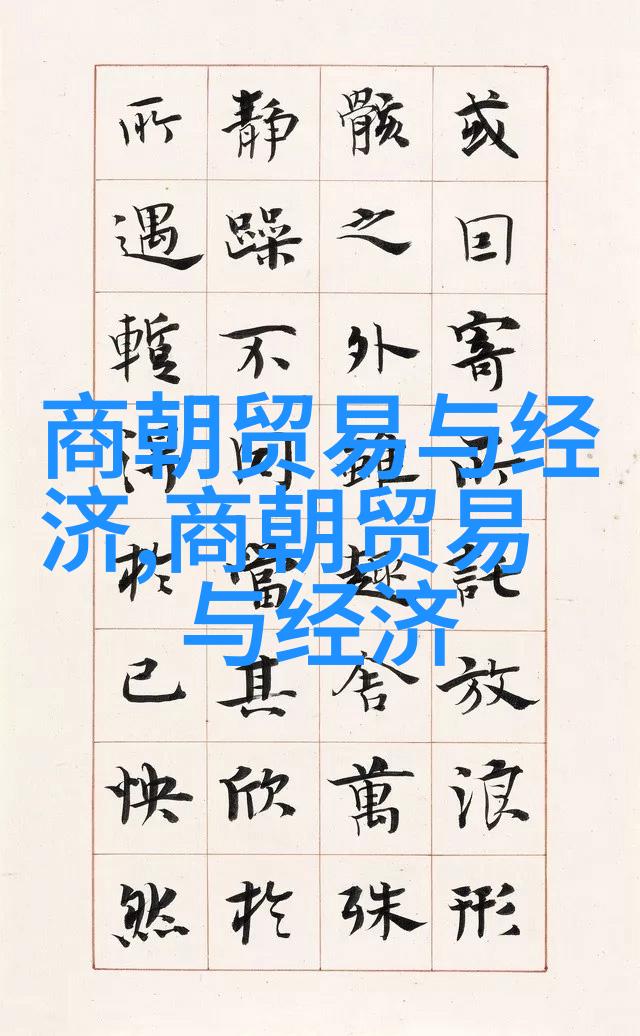 或囙寄所託放浪形
骸之外雖趣舍萬殊
静躁不同當其欣於
所遇暫得於己怏然
商朝贸易与经
济,商朝贸易
与经济